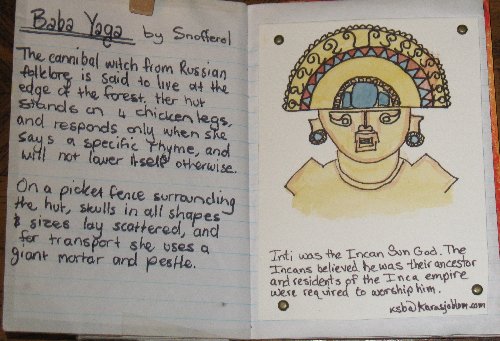 Baba Yaga by Snofferol
The cannibal witch from Russian
folklore is said to live at the
edge of the forest. Her hut
stands on 4 chicken legs
and responds only when she
says a specific rhyme, and
will not lower itself otherwise.
On a picket fence surrounding
the hut, skulls in all shapes
& sizes lay scattered, and
for transport she uses a
giant mortar and pestle.
Inti was the Incan Sun God. The
Incans believed he was their ancestor
and residents of the Inca empire
were required to worship him.